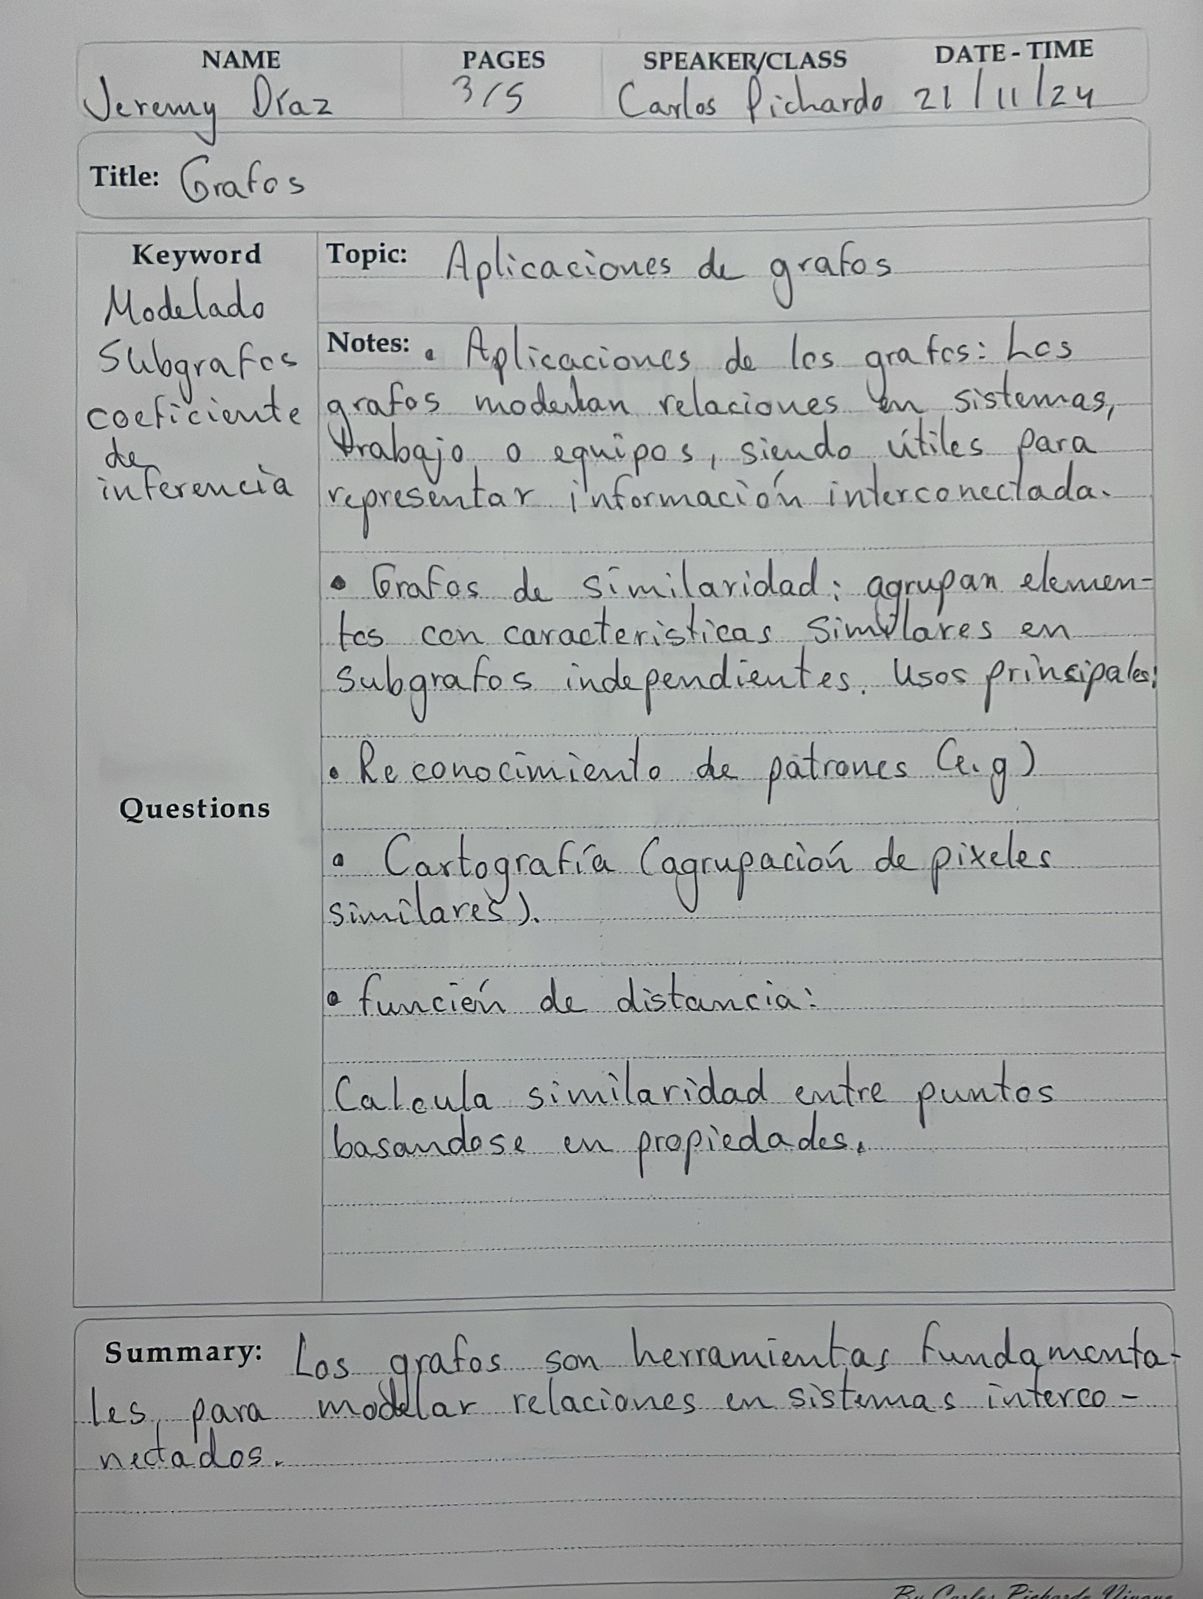 NAME PAGES SPEAKER/CLASS DATE - TIME
Jeremy Díaz 3/5 Carlos Pichardo 21/11/24
Title: Grafos
Keyword
Modelado
Subgrafos
coeficiente
de
inferencia
Questions
Topic: Aplicaciones de grafos
Notes: • Aplicaciones de los grafos: Los
grafos modelan relaciones en sistemas,
trabajo o equipos, siendo útiles para
representar información interconectada.
• Grafos de similaridad: agrupan elemen-
tos con caracteristicas similares en
subgrafos independientes. Usos prinsipales:
• Reconocimiento de patrones (e.g)
• Cartografía (agrupación de pixeles
similares).
• función de distancia:
Calcula similaridad entre puntos
basandose en propiedades.
Summary: Los grafos son herramientas fundamenta-
les, para modelar relaciones en sistemas interco-
nectados.
By Carlos Pichardo